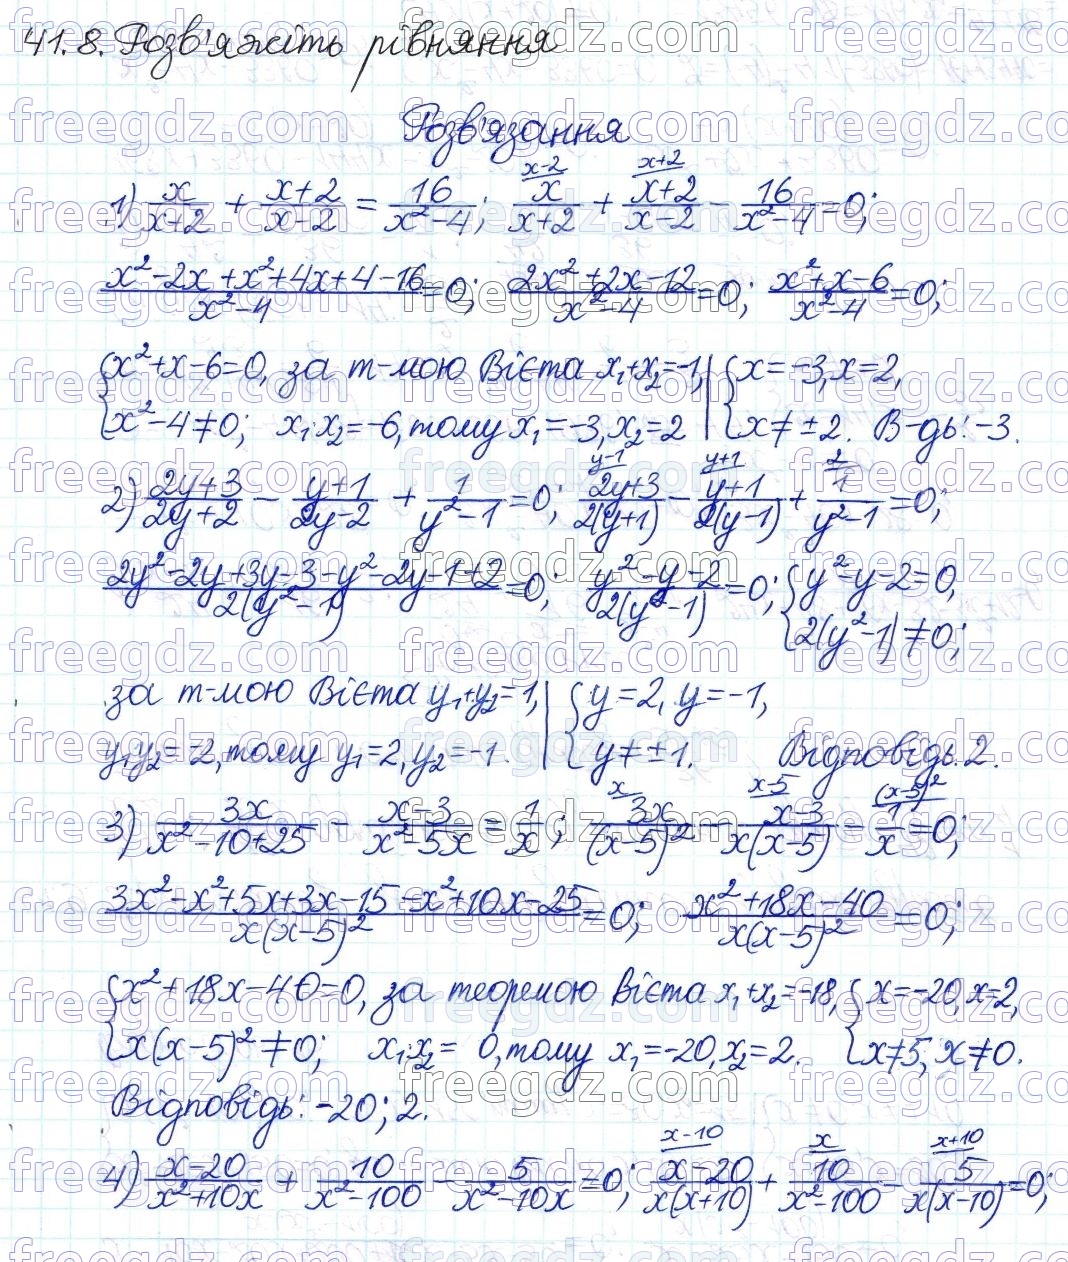 41.8. Розв'яжіть рівняння
Розв'язання
1) x/(x+2) + (x+2)/(x-2) = 16/(x²-4); x^(x-2)/(x+2) + (x+2)^(x+2)/(x-2) - 16/(x²-4) = 0;
(x²-2x+x²+4x+4-16)/(x²-4) = 0; (2x²+2x-12)/(x²-4) = 0; (x²+x-6)/(x²-4) = 0;
{x²+x-6=0, за т-мою Вієта x₁+x₂=-1, | {x=-3, x=2,
{x²-4≠0; x₁·x₂=-6, тому x₁=-3, x₂=2 | {x≠±2. В-дь: -3.
2) (2y+3)/(2y+2) - (y+1)/(2y-2) + 1/(y²-1) = 0; (2y+3)^(y-1)/(2(y+1)) - (y+1)^(y+1)/(2(y-1)) + 1^(2)/(y²-1) = 0;
(2y²-2y+3y-3-y²-2y-1+2)/(2(y²-1)) = 0; (y²-y-2)/(2(y²-1)) = 0; {y²-y-2=0,
{2(y²-1)≠0;
за т-мою Вієта y₁+y₂=1, | {y=2, y=-1,
y₁y₂=-2, тому y₁=2, y₂=-1. | {y≠±1. Відповідь. 2.
3) 3x/(x²-10+25) - (x-3)/(x²-5x) = 1/x; 3x^(x)/(x-5)² - (x-3)^(x-5)/(x(x-5)) - 1^((x-5)²)/x = 0;
(3x²-x²+5x+3x-15-x²+10x-25)/(x(x-5)²) = 0; (x²+18x-40)/(x(x-5)²) = 0;
{x²+18x-40=0, за теоремою Вієта x₁+x₂=-18, {x=-20, x=2,
{x(x-5)²≠0; x₁·x₂= 0, тому x₁=-20, x₂=2. {x≠5, x≠0.
Відповідь: -20; 2.
4) (x-20)/(x²+10x) + 10/(x²-100) - 5/(x²-10x) = 0; (x-20)^(x-10)/(x(x+10)) + 10^(x)/(x²-100) - 5^(x+10)/(x(x-10)) = 0;
freegdz.com